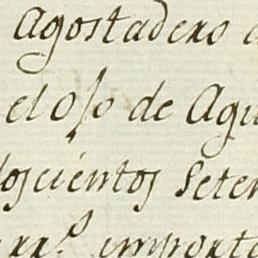 Agostadero
el oso de Agu
doscientos Seten
rr.s importe